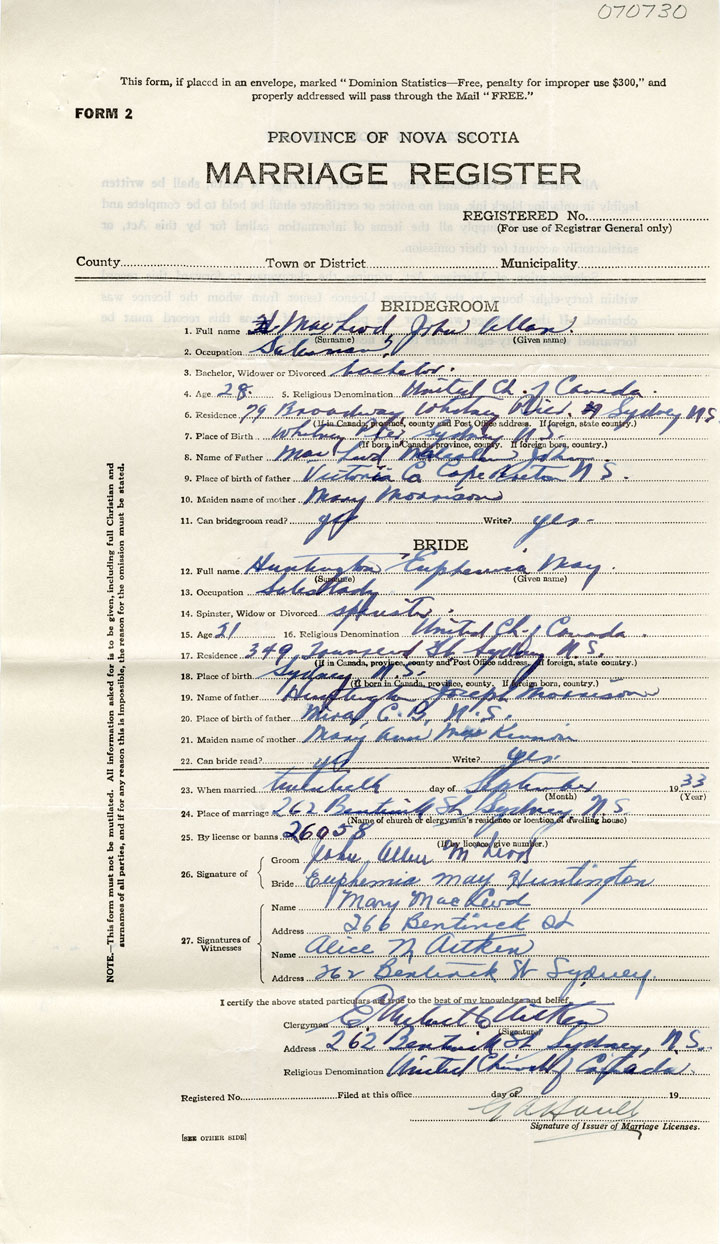 070730
This form, if placed in an envelope, marked "Dominion Statistics—Free, penalty for improper use $300," and
properly addressed will pass through the Mail "FREE."
FORM 2
PROVINCE OF NOVA SCOTIA
MARRIAGE REGISTER
REGISTERED No.
(For use of Registrar General only)
County Town or District Municipality
BRIDEGROOM
1. Full name MacLeod, John Allan
(Surname) (Given name)
2. Occupation Salesman
3. Bachelor, Widower or Divorced bachelor.
4. Age 28. 5. Religious Denomination United Ch. of Canada.
6. Residence 79 Broadway, Whitney Pier, Sydney N.S.
(If in Canada, province, county and Post Office address. If foreign, state country.)
7. Place of Birth Whitney Pier, Sydney N.S.
(If born in Canada, province, county. If foreign born, country.)
8. Name of Father MacLeod Malcolm John
9. Place of birth of father Victoria Co. Cape Breton N.S.
10. Maiden name of mother Mary Morrison
11. Can bridegroom read? yes Write? yes-
BRIDE
12. Full name Huntington Euphemia May.
(Surname) (Given name)
13. Occupation Saleslady
14. Spinster, Widow or Divorced spinster.
15. Age 21 16. Religious Denomination United Ch. of Canada.
17. Residence 349 Townsend St. Sydney N.S.
(If in Canada, province, county and Post Office address. If foreign, state country.)
18. Place of birth Sydney N.S.
(If born in Canada, province, county. If foreign born, country.)
19. Name of father Huntington Joseph Morrison
20. Place of birth of father Mira, C.B., N.S.
21. Maiden name of mother Mary Ann MacKinnon
22. Can bride read? yes Write? yes.
23. When married twelfth day of September 1933
(Month) (Year)
24. Place of marriage 262 Bentinck St. Sydney N.S.
(Name of church or clergyman's residence or location of dwelling house)
25. By license or banns 26058
(If by license, give number.)
26. Signature of Groom John Allan McLeod
Bride Euphemia May Huntington
27. Signatures of Witnesses
Name Mary MacLeod
Address 266 Bentinck St
Name Alice M Aitken
Address 262 Bentinck St Sydney
I certify the above stated particulars are true to the best of my knowledge and belief,
Clergyman Aitken
(Signature)
Address 262 Bentinck St. Sydney, N.S.
Religious Denomination United Church of Canada.
Registered No. Filed at this office day of 19
Signature of Issuer of Marriage Licenses.
[SEE OTHER SIDE]
NOTE.—This form must not be mutilated. All information asked for is to be given, including full Christian and
surnames of all parties, and if for any reason this is impossible, the reason for the omission must be stated.